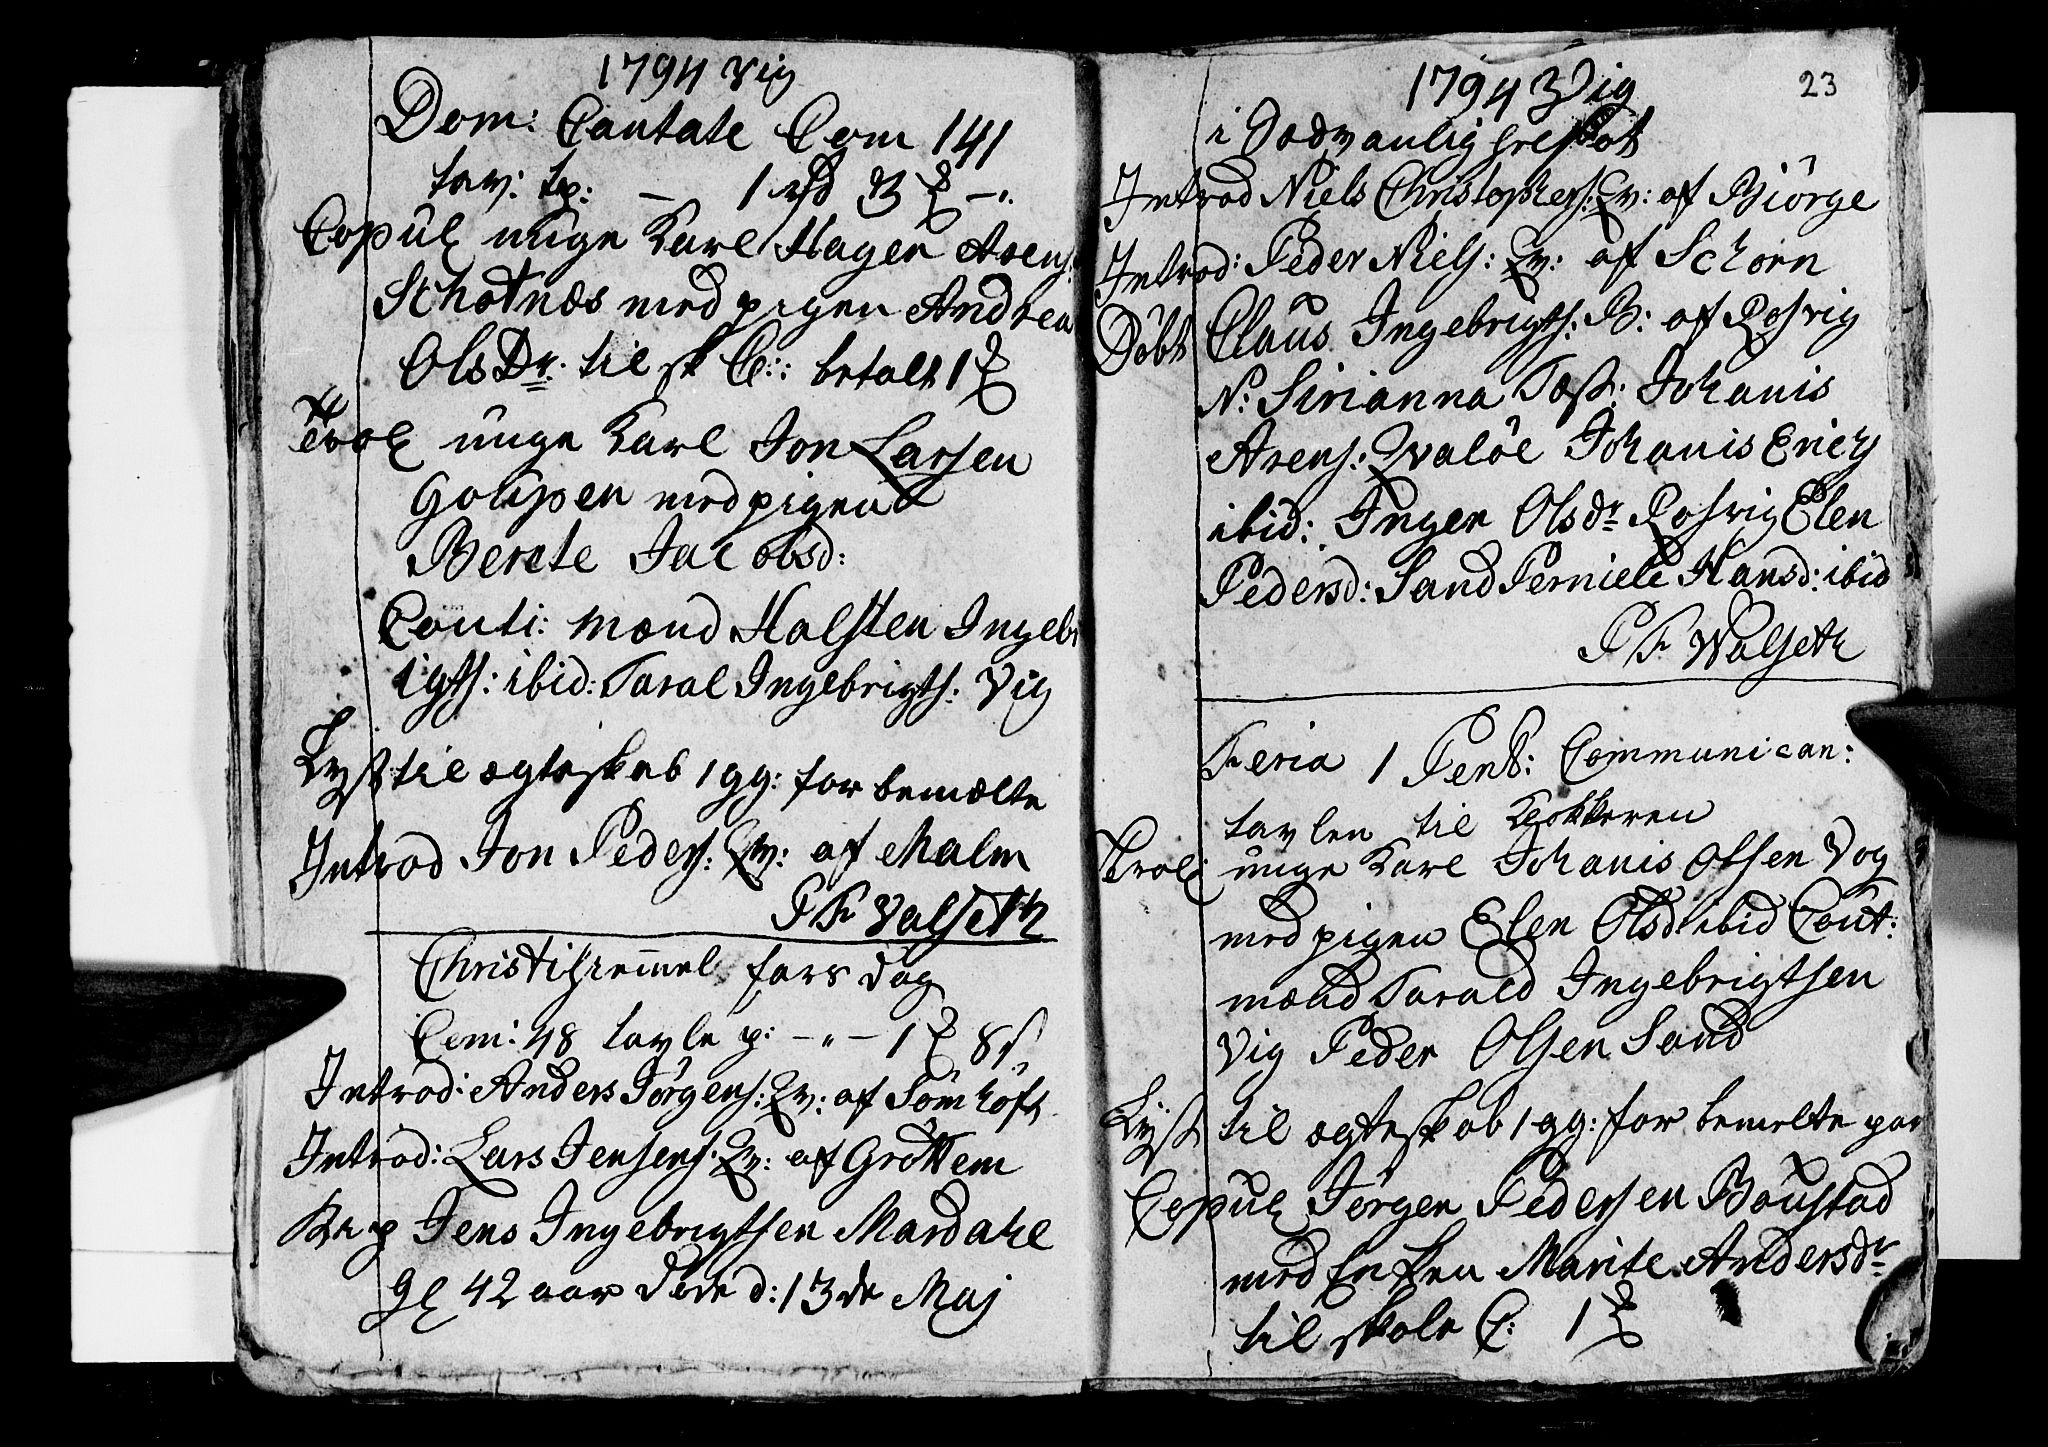 1794 Vig
Dom: Cantate Com 141
tav: p: — 1 rd 3 —"
Copul unge Karl Hagen Arens:
Schotnæs med pigen Andrea
Ols Dr. til sk C: betalt 1
Trol unge Karl Jon Larsen
Goupen med pigen
Berete Jacobsd:
Conti: mænd Halsten Ingebr
igts: ibid: Taral Ingebrigts: Vig
Lyst til ægteskab 1 gg: for bemælte
Introd Jon Peders: Qv: af Malm
P F Valseth
Christi Hemmel fars dag
Com: 48 tavle p: —"— 1 8 s
Introd: Anders Jørgens: Qv: af Sømhøft
Introd: Lars Jensens: Qv: af Grøttem
Jens Ingebrigtsen Mardahl
gl 42 aar døde d: 13de Maj
1794 Vig
23
i
Introd Niels Christophers: Qv: af Biörge
Introd: Peder Niels: Qv: af Schorn
Döbt Claus Ingebrigts: B: af Rosvig
N: Sirianna Test: Johanis
Arens: Qvaløe Johanis Erichs
ibid: Inger Olsdr Rosvig Elen
Pedersd: Sand Perniele Hansd: ibid
P F Walseth
Feria 1 Pent: Communican:
tavlen til Klokkeren
Trol: unge Karl Johanis Olsen Vog
med pigen Elen Olsdr ibid Cout:
mænd Tarald Ingebrigtsen
Vig Peder Olsen Sand
Lyst til ægteskab 1 gg: for bemelte par
Copul Jørgen Pedersen Boustad
med Enken Marite Andersdr
til skole C: 1